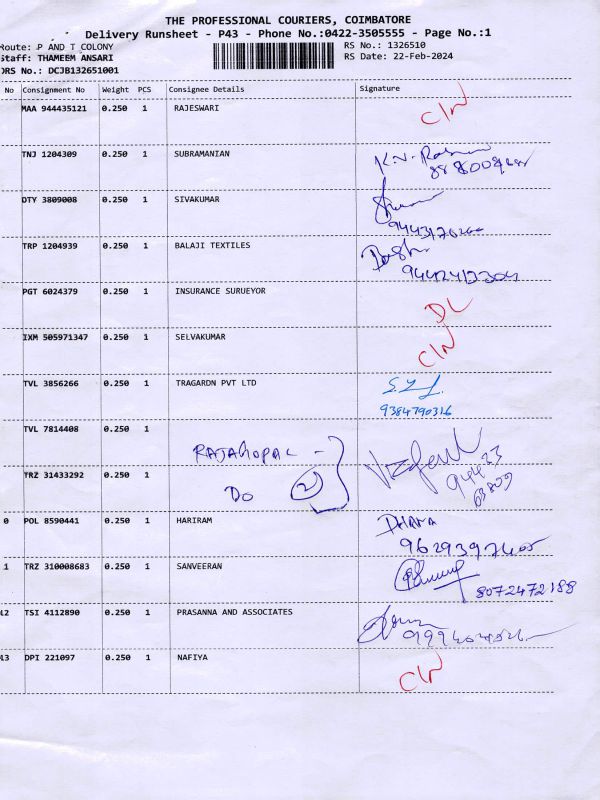 THE PROFESSIONAL COURIERS, COIMBATORE
Delivery Runsheet - P43 - Phone No.:0422-3505555 - Page No.:1
Route: P AND T COLONY
Staff: THAMEEM ANSARI
DRS No.: DCJB132651001
RS No.: 1326510
RS Date: 22-Feb-2024
No Consignment No Weight PCS Consignee Details Signature
MAA 944435121 0.250 1 RAJESWARI C/N
TNJ 1204309 0.250 1 SUBRAMANIAN K.V.
DTY 3809008 0.250 1 SIVAKUMAR
TRP 1204939 0.250 1 BALAJI TEXTILES
PGT 6024379 0.250 1 INSURANCE SURUEYOR DL
IXM 505971347 0.250 1 SELVAKUMAR C/N
TVL 3856266 0.250 1 TRAGARDN PVT LTD
9384790316
TVL 7814408 0.250 1 RAJAGOPAL -
TRZ 31433292 0.250 1 DO 2
94433
0 POL 8590441 0.250 1 HARIRAM DHANA
1 TRZ 310008683 0.250 1 SANVEERAN
8072472188
12 TSI 4112890 0.250 1 PRASANNA AND ASSOCIATES
13 DPI 221097 0.250 1 NAFIYA C/N